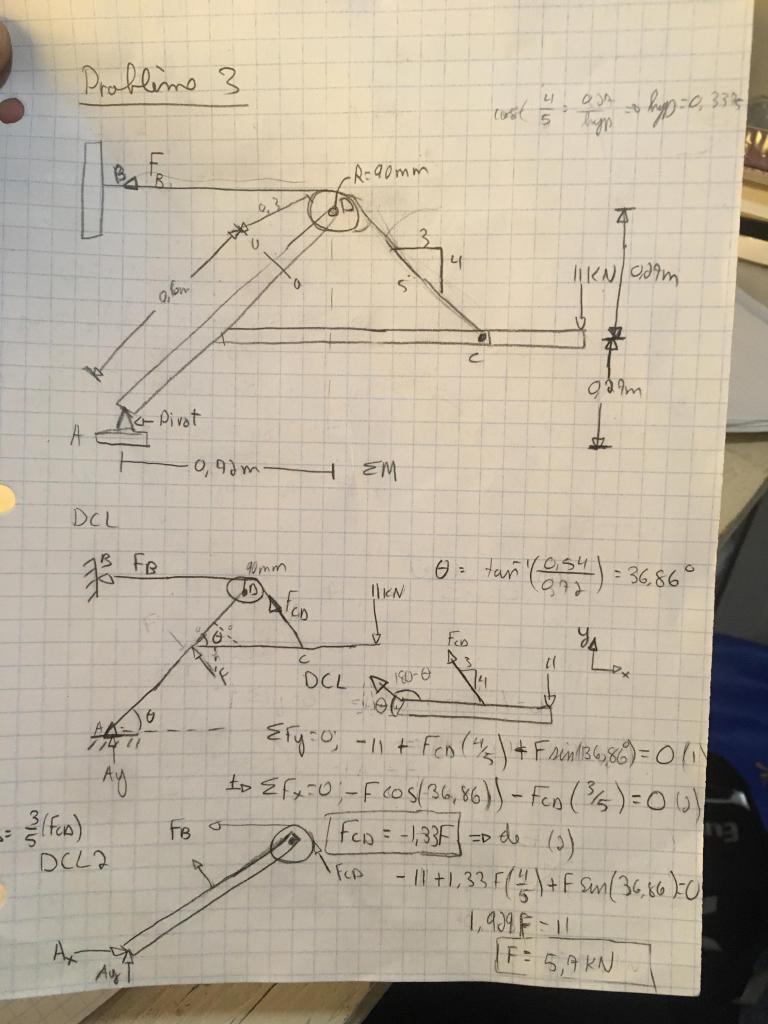 Problème 3
cos( 4/5 = 0,27/hyp ⇒ hyp = 0,3375
B F_B
R=90mm
D
0,3
3
4
5
0,6m
11KN
0,29m
C
0,29m
Pivot
A
0,92m
ΣM
DCL
B F_B
90mm
D
F_CD
11KN
θ = tan⁻¹(0,54/0,72) = 36,86°
θ
F
C
A θ
Ay
DCL
180-θ
θ
F_CD
3
4
11
y
x
ΣFy=0; -11 + F_CD(4/5) + F sin(36,86°) = 0 (1)
ΣFx=0; -F cos(36,86) - F_CD(3/5) = 0 (2)
= 3/5 (F_CD)
F_CD = -1,33F ⇒ de (2)
DCL2
F_B
F_CD
-11+1,33F(4/5)+F sin(36,86)=0
1,929F = 11
F = 5,7 KN
Ax
Ay